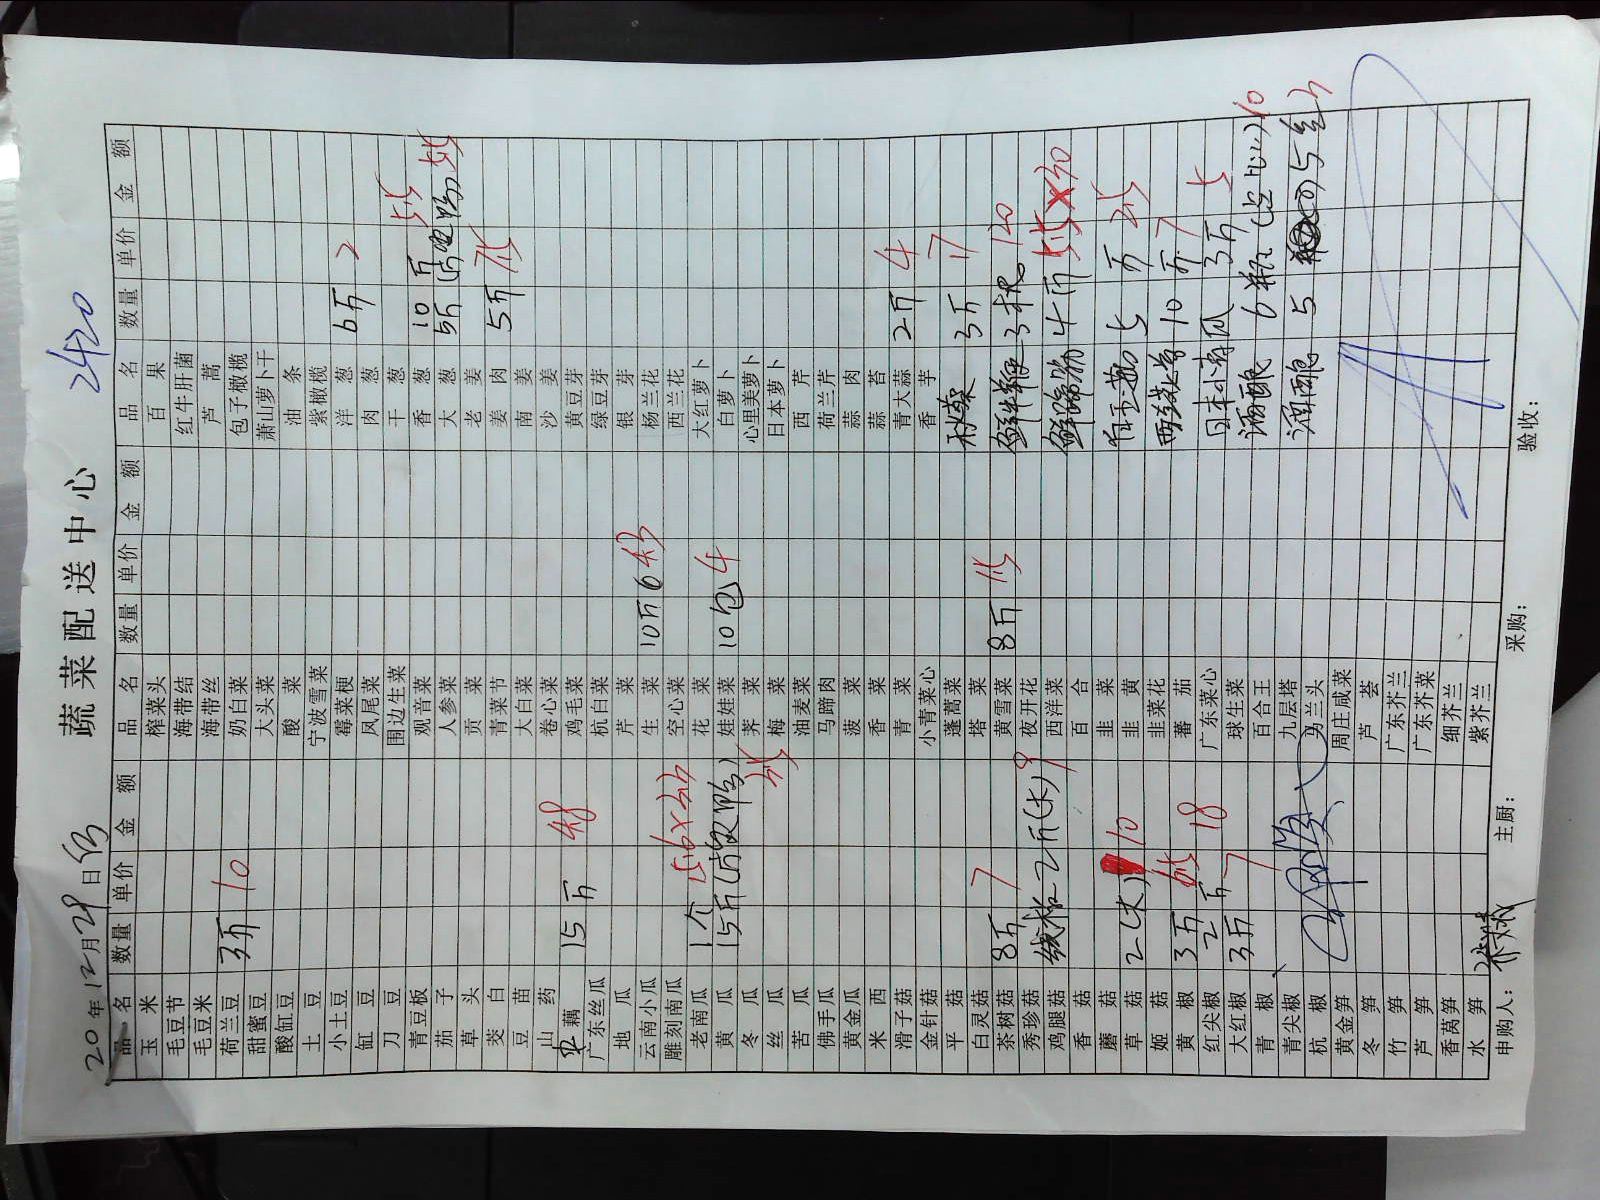 蔬菜配送中心
2420
20 年 12 月 29 日
品名 数量 单价 金额 品名 数量 单价 金额 品名 数量 单价 金额
玉米 榨菜头 百果
毛豆节 海带结 红牛肝菌
毛豆米 海带丝 芦蒿
荷兰豆 3斤 10 奶白菜 包子橄榄
甜蜜豆 大头菜 萧山萝卜干
酸缸豆 酸菜 油条
土豆 宁波雪菜 紫橄榄
小土豆 霉菜梗 洋葱 6斤 2
缸豆 凤尾菜 肉葱
刀豆 围边生菜 干葱
青豆板 观音菜 香葱 10斤
茄子 人参菜 大葱 5斤
草头 贡菜 老姜
茭白 青菜节 姜肉 5斤
豆苗 大白菜 南姜
山药 卷心菜 沙姜
藕 15斤 48 鸡毛菜 黄豆芽
广东丝瓜 杭白菜 绿豆芽
地瓜 芹菜 银芽
云南小瓜 生菜 10斤 杨兰花
雕刻南瓜 空心菜 西兰花
老南瓜 1个 花菜 大红萝卜
黄瓜 15斤 娃娃菜 10包 4 白萝卜
冬瓜 荠菜 心里美萝卜
丝瓜 梅菜 日本萝卜
苦瓜 油麦菜 西芹
佛手瓜 马蹄肉 荷兰芹
黄金瓜 菠菜 蒜肉
米西 香菜 蒜苔
滑子菇 青菜 青大蒜 2斤 4
金针菇 小青菜心 香芋
平菇 蓬蒿菜 秋葵 3斤 17
白灵菇 塔菜
茶树菇 8斤 7 黄雪菜 8斤 3根 120
秀珍菇 夜开花
鸡腿菇 2斤(大) 9 西洋菜 4斤
香菇 百合
蘑菇 韭菜 5斤
草菇 2(大) 10 韭黄
姬菇 韭菜花 10斤 7
黄椒 3斤 蕃茄
红尖椒 2斤 18 广东菜心 日本小南瓜 3斤 5
大红椒 3斤 7 球生菜 酒酿 6瓶 10
青椒 百合王
青尖椒 九层塔 酒酿 5
杭椒 马兰头
黄金笋 周庄咸菜
冬笋 芦荟
竹笋 广东芥兰
芦笋 广东芥菜
香莴笋 细芥兰
水笋 紫芥兰
申购人： 主厨： 采购： 验收：